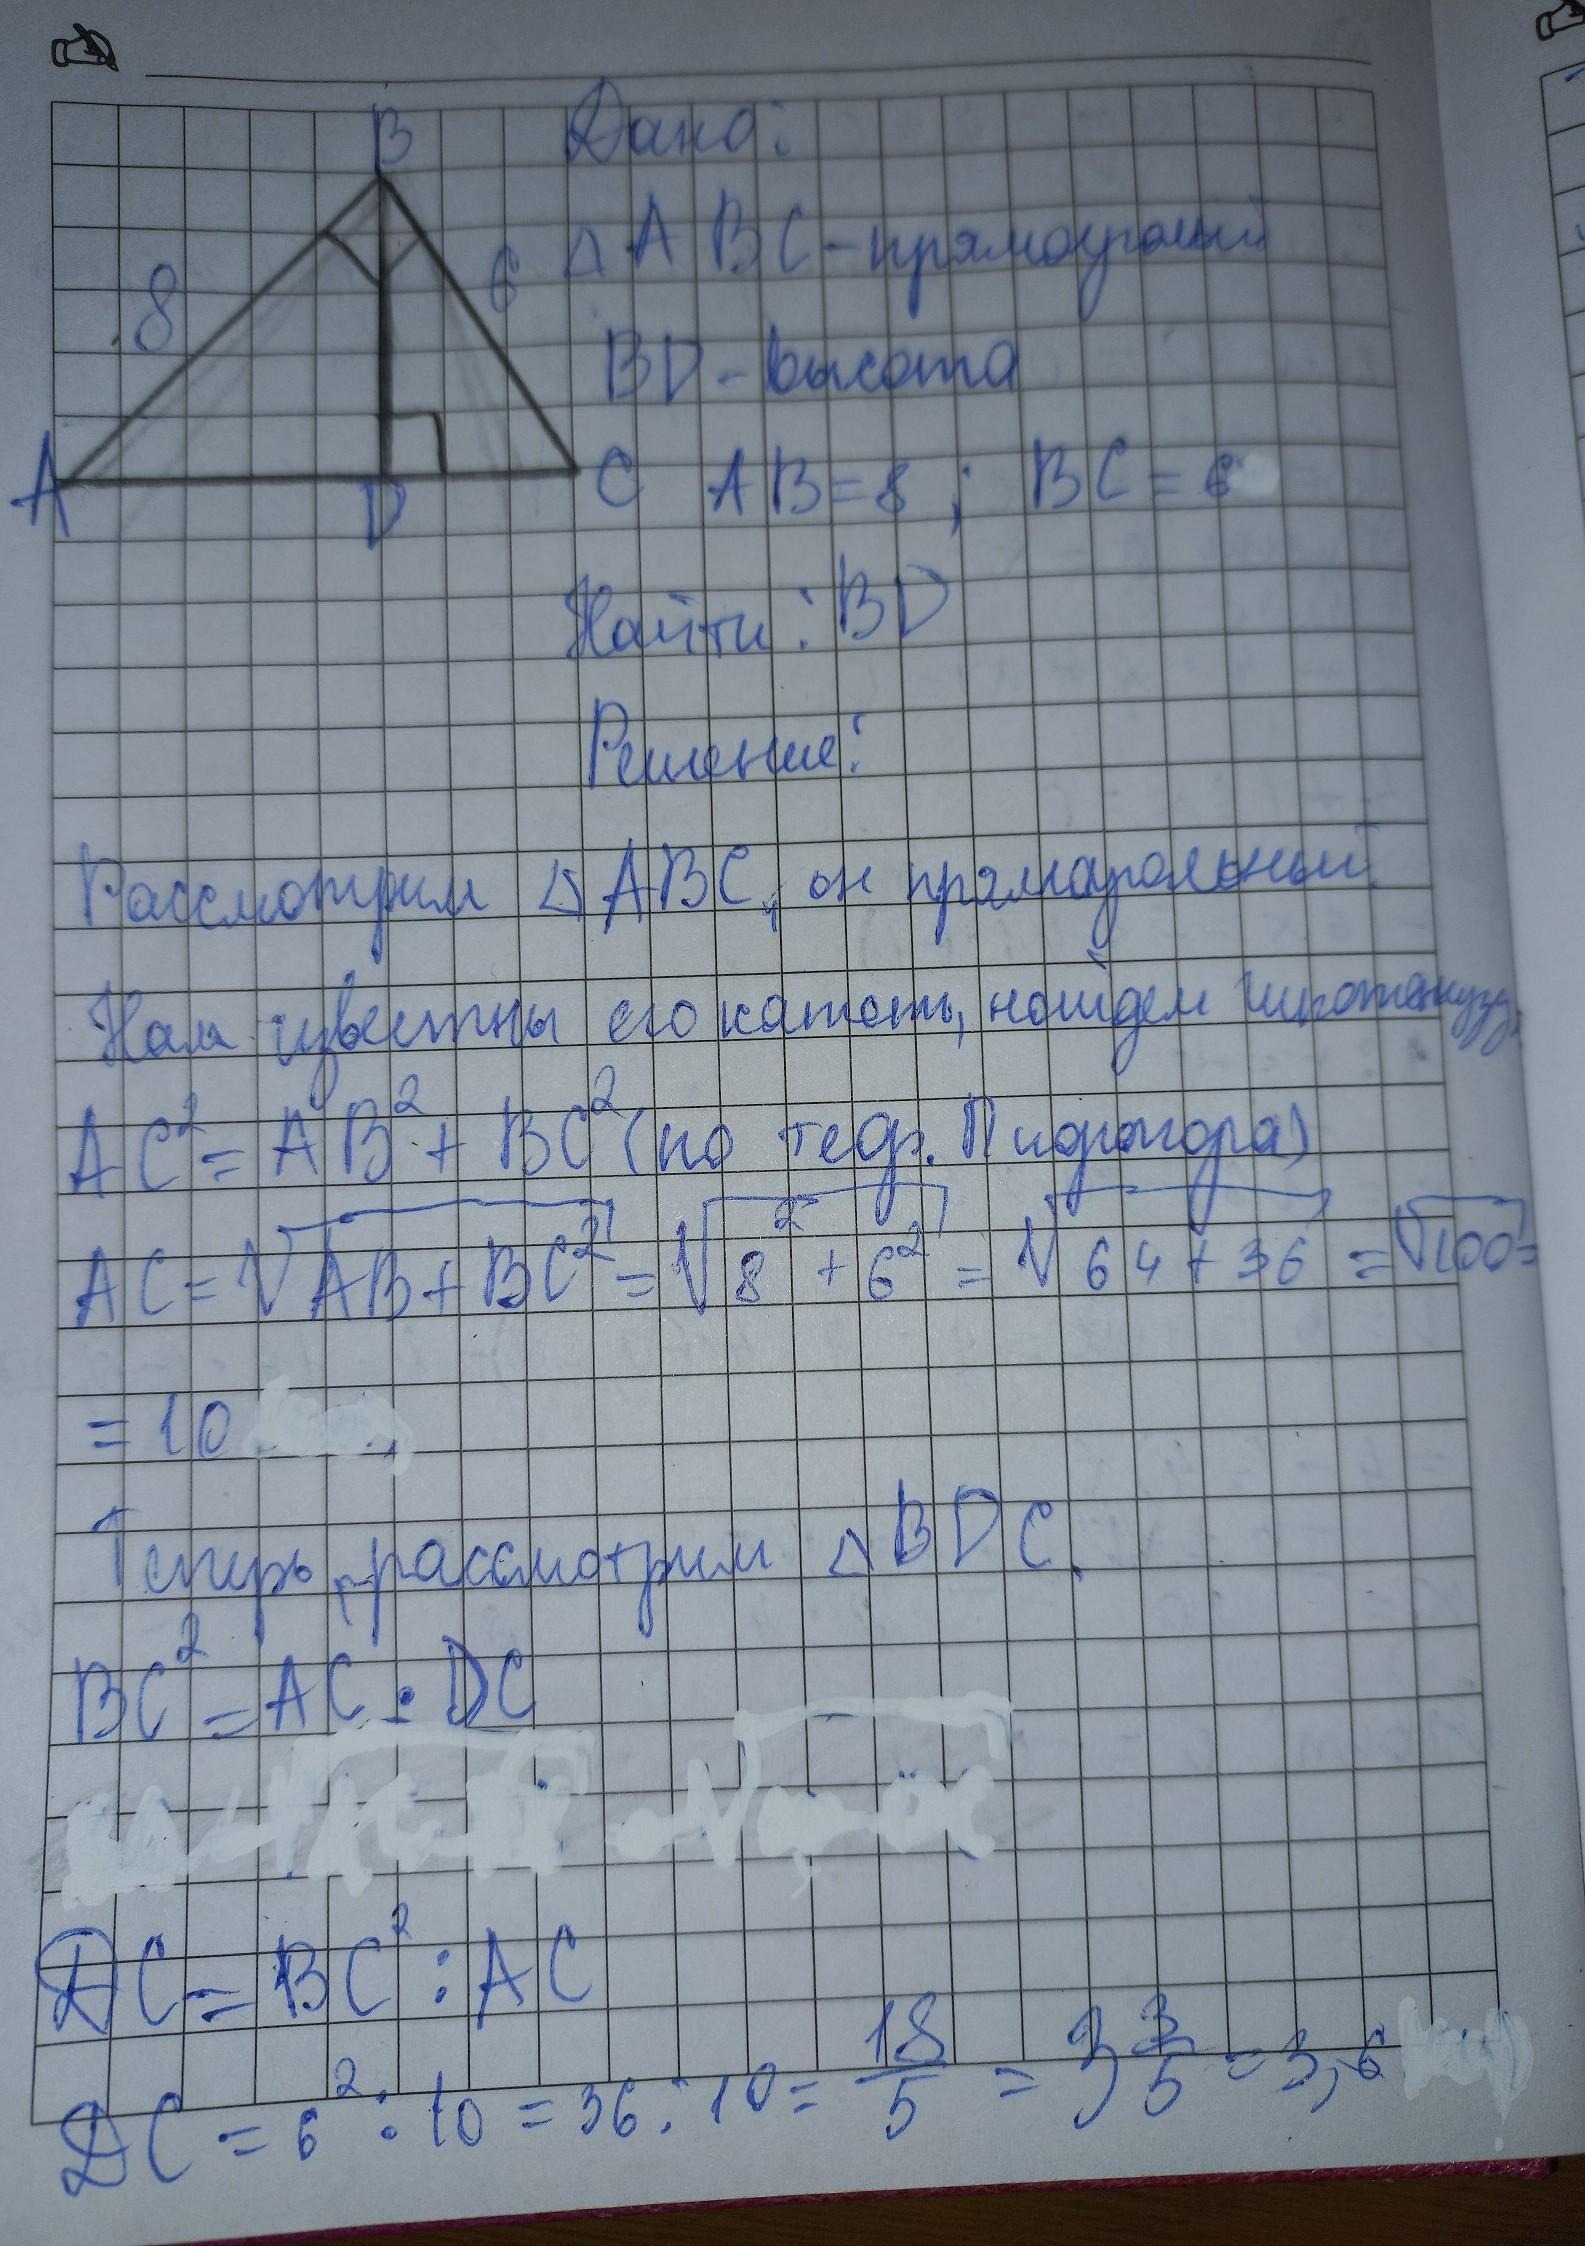 B
Дано:
8
6
△ABC-прямоуголный
BD-высота
A
D
C
AB=8; BC=6
Найти: BD
Решение:
Рассмотрим △ABC, он прямоугольный
Нам известны его катеты, найдем гипотенузу.
AC²=AB²+BC² (по теор. Пифагора)
AC=√AB+BC² = √8²+6² = √64+36 = √100=
=10
Теперь, рассмотрим △BDC.
BC²=AC·DC
DC=BC²:AC
DC=6²:10=36:10= 18/5 = 3 3/5 =3,6